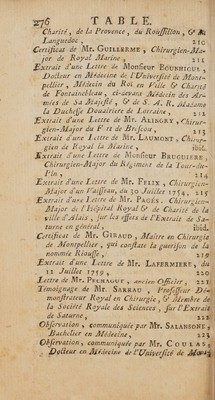 276 TABLE.
Charité, de la Provence, du Roussillon, & du
Languedoc. 210
Certificat de Mr. GUILLERME, Chirurgien-Ma-
jor de Royal Marine, 211
Extrait d'une Lettre de Monsieur BOURNIGUL,
Docteur en Médecine de l'Université de Mont-
pellier, Médecin du Roi en Ville & Charité
de Fontainebleau, ci-devant Médecin des Ar-
mées de Sa Majesté, & de S. A. R. Madame
la Duchesse Douairiere de Lorraine, 212
Extrait d'une Lettre de Mr. Chirur-
gien-Major du Fort de Brescou, 213
Extrait d'une Lettre de Mr. LAUMONT, Chirur-
gien de Royal la Marine, ibid.
Extrait d'une Lettre de Monsieur BRUGUIERE,
Chirurgien-Major du Régiment de la Tour-du-
Pin, 214
Extrait d'une Lettre de Mr. FELIX, Chirurgien-
Major d'un Vaisseau, du 30 Juillet 1754, 215
Extrait d'une Lettre de Mr. PAGÈS, Chirurgien-
Major de l'Hôpital Royal & de Charité de la
ville d'Alais, sur les effets de l'Extrait de Sa-
turne en général, ibid.
Certificat de Mr. GIRAUD, Maître en Chirurgie
de Montpellier, qui constate la guerison de la
nommée Riouffe, 219
Extrait d'une Lettre de Mr. LAFERMIERE, du
11 Juillet 1759, 220
Lettre de Mr. PECHAGUT, ancien Officier, 221
Témoignage de Mr. SARRAU, Professeur Dé-
monstrateur Royal en Chirurgie, & Membre de
la Société Royale des Sciences, sur l'Extrait
de Saturne, 222
Observation, communiquée par Mr. SALANSONE,
Bachelier en Médecine, 222
Observation, communiquée par Mr. COULAS,
Docteur en Médecine de l'Université de